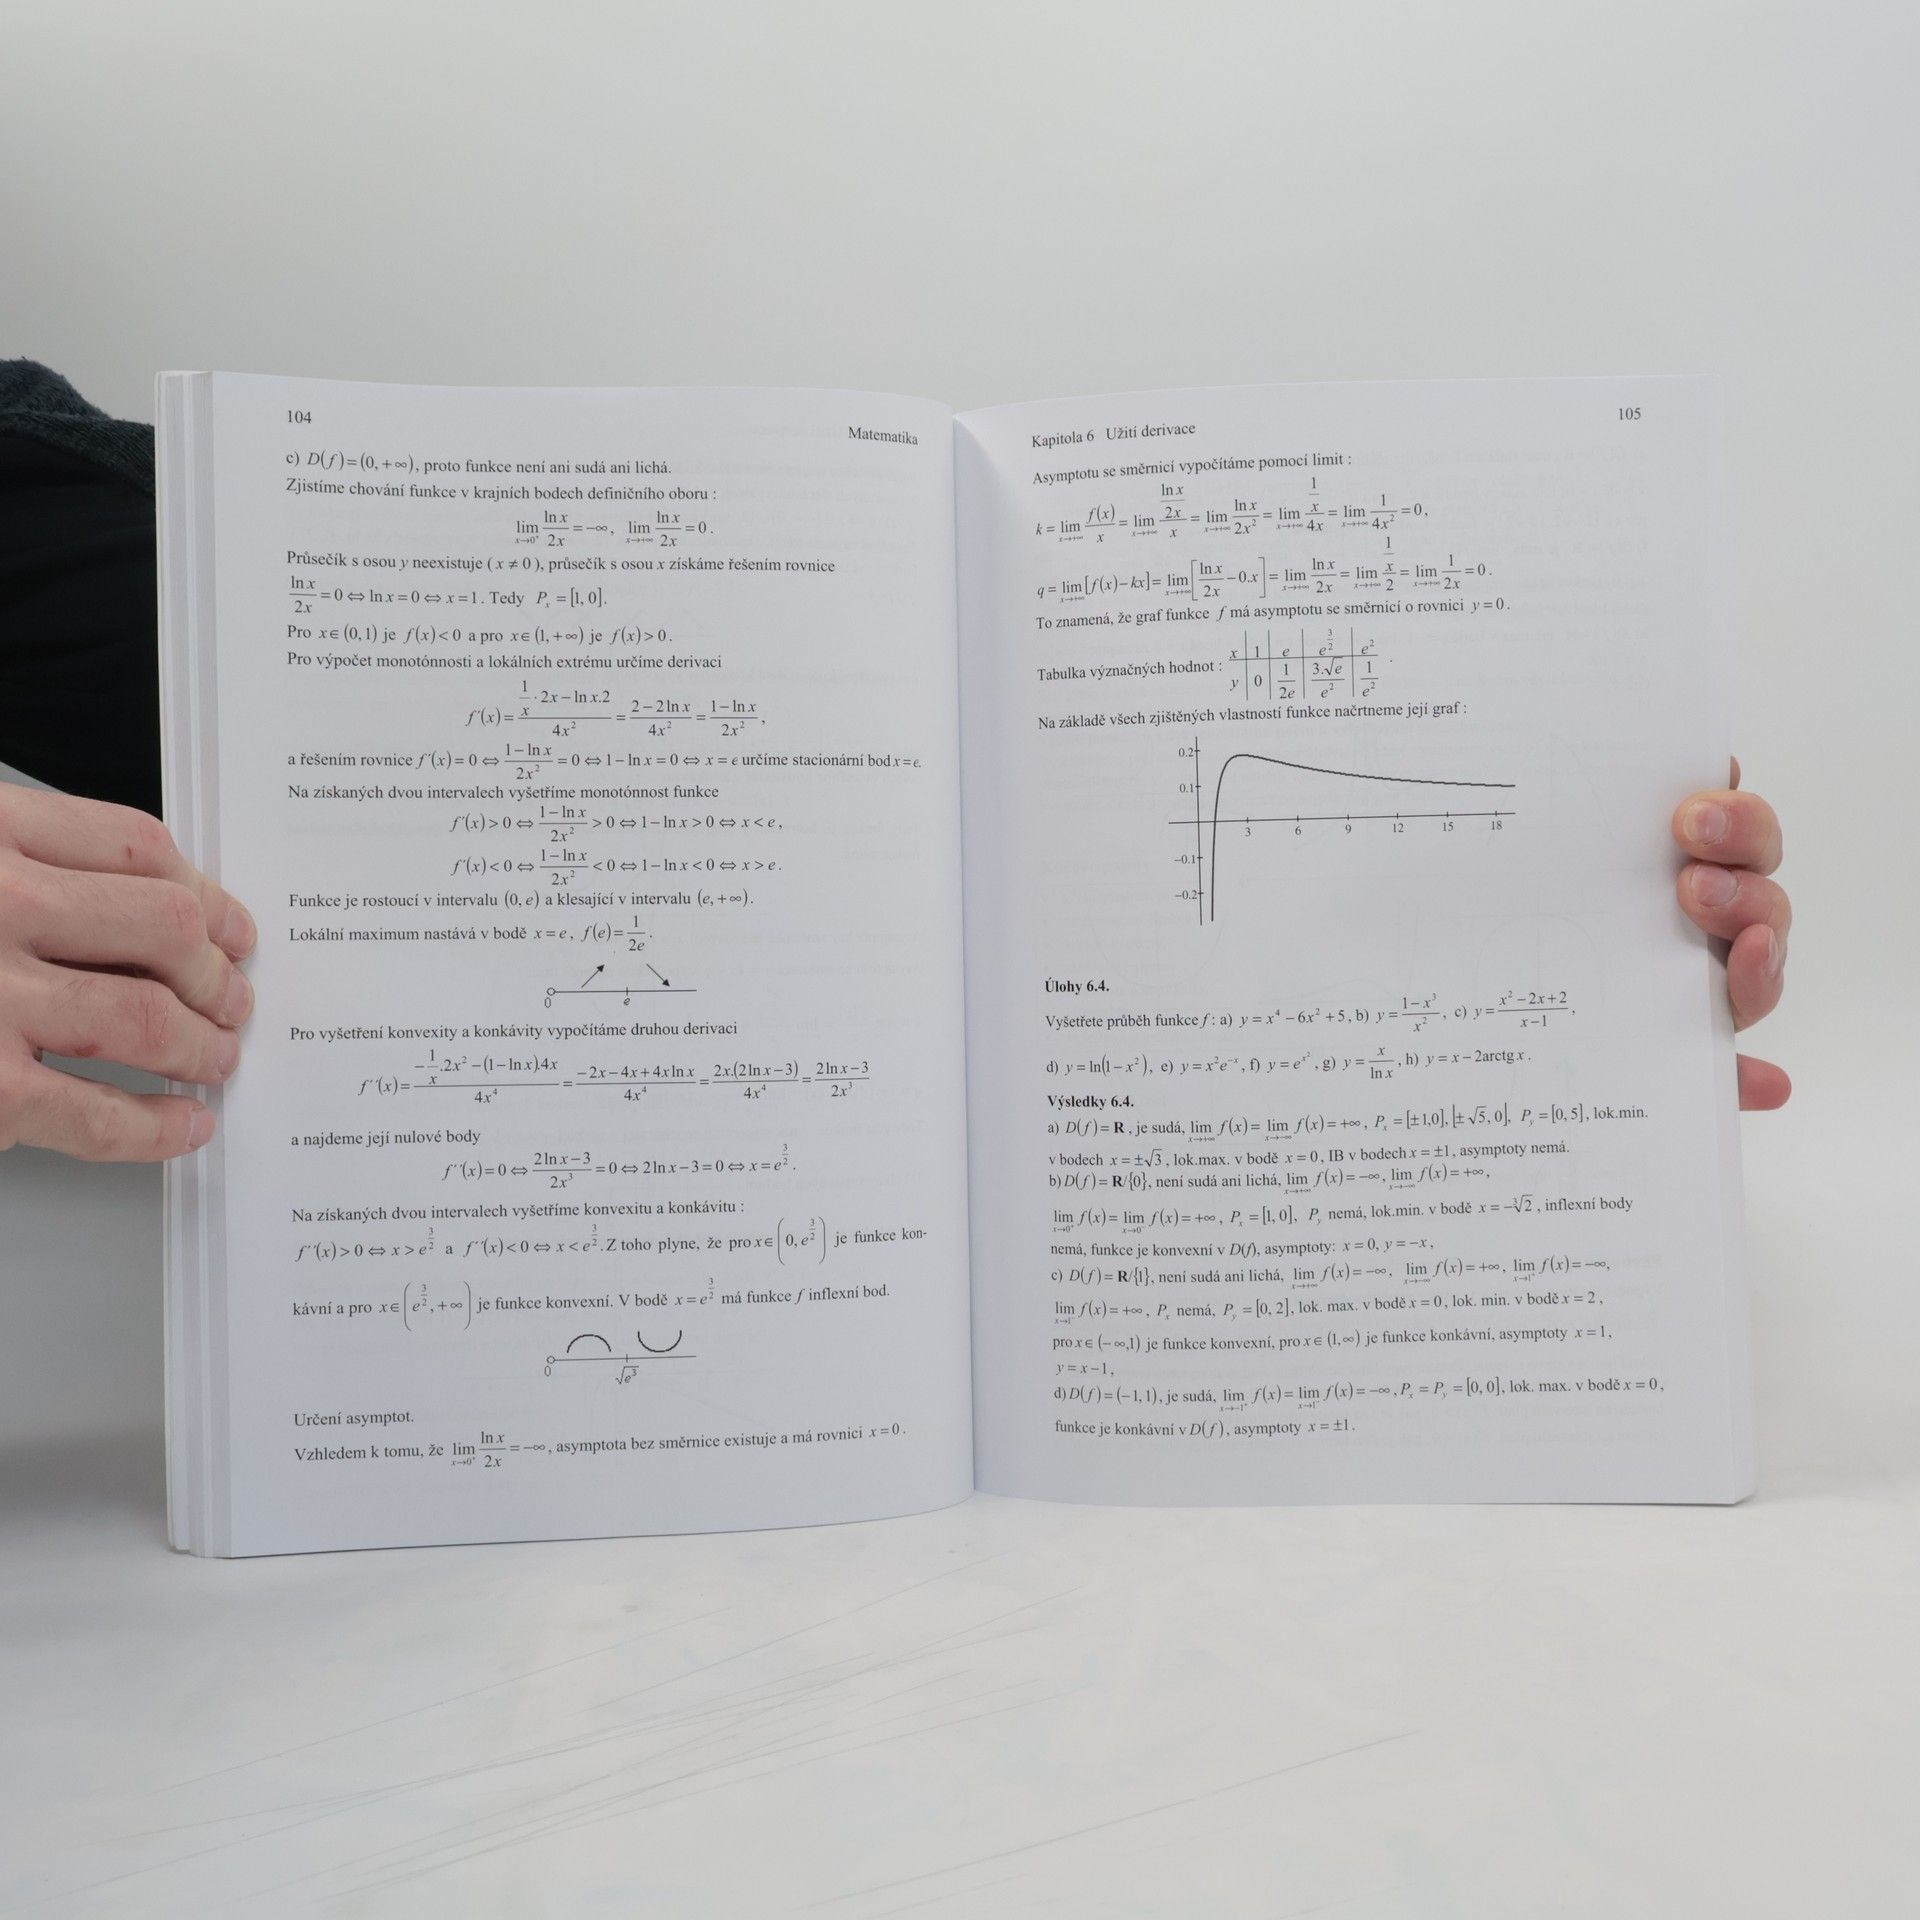 104
Matematika
c) D(f)=(0,+∞), proto funkce není ani sudá ani lichá.
Zjistíme chování funkce v krajních bodech definičního oboru :
lim_{x→0⁺} ln x / 2x = −∞, lim_{x→+∞} ln x / 2x = 0.
Průsečík s osou y neexistuje (x ≠ 0), průsečík s osou x získáme řešením rovnice
ln x / 2x = 0 ⇔ ln x = 0 ⇔ x = 1. Tedy Pₓ = [1, 0].
Pro x∈(0,1) je f(x)<0 a pro x∈(1,+∞) je f(x)>0.
Pro výpočet monotónnosti a lokálních extrému určíme derivaci
f´(x) = (1/x · 2x − ln x.2) / 4x² = (2 − 2 ln x) / 4x² = (1 − ln x) / 2x²,
a řešením rovnice f´(x) = 0 ⇔ (1 − ln x) / 2x² = 0 ⇔ 1 − ln x = 0 ⇔ x = e určíme stacionární bod x = e.
Na získaných dvou intervalech vyšetříme monotónnost funkce
f´(x) > 0 ⇔ (1 − ln x) / 2x² > 0 ⇔ 1 − ln x > 0 ⇔ x < e,
f´(x) < 0 ⇔ (1 − ln x) / 2x² < 0 ⇔ 1 − ln x < 0 ⇔ x > e.
Funkce je rostoucí v intervalu (0, e) a klesající v intervalu (e, +∞).
Lokální maximum nastává v bodě x = e, f(e) = 1 / 2e.
0 e
Pro vyšetření konvexity a konkávity vypočítáme druhou derivaci
f´´(x) = (−1/x .2x² − (1 − ln x).4x) / 4x⁴ = (−2x − 4x + 4x ln x) / 4x⁴ = 2x.(2 ln x − 3) / 4x⁴ = (2 ln x − 3) / 2x³
a najdeme její nulové body
f´´(x) = 0 ⇔ (2 ln x − 3) / 2x³ = 0 ⇔ 2 ln x − 3 = 0 ⇔ x = e^{3/2}.
Na získaných dvou intervalech vyšetříme konvexitu a konkávitu :
f´´(x) > 0 ⇔ x > e^{3/2} a f´´(x) < 0 ⇔ x < e^{3/2}. Z toho plyne, že pro x∈(0, e^{3/2}) je funkce kon-
kávní a pro x∈(e^{3/2}, +∞) je funkce konvexní. V bodě x = e^{3/2} má funkce f inflexní bod.
0 √e³
Určení asymptot.
Vzhledem k tomu, že lim_{x→0⁺} ln x / 2x = −∞, asymptota bez směrnice existuje a má rovnici x = 0.
105
Kapitola 6 Užití derivace
Asymptotu se směrnicí vypočítáme pomocí limit :
k = lim_{x→+∞} f(x)/x = lim_{x→+∞} (ln x / 2x) / x = lim_{x→+∞} ln x / 2x² = lim_{x→+∞} (1/x) / 4x = lim_{x→+∞} 1 / 4x² = 0,
q = lim_{x→+∞} [f(x) − kx] = lim_{x→+∞} [ln x / 2x − 0.x] = lim_{x→+∞} ln x / 2x = lim_{x→+∞} (1/x) / 2 = lim_{x→+∞} 1 / 2x = 0.
To znamená, že graf funkce f má asymptotu se směrnicí o rovnici y = 0.
Tabulka význačných hodnot :
x | 1 | e | e^{3/2} | e²
y | 0 | 1/2e | 3.√e / e² | 1/e² .
Na základě všech zjištěných vlastností funkce načrtneme její graf :
0.2
0.1
3 6 9 12 15 18
−0.1
−0.2
Úlohy 6.4.
Vyšetřete průběh funkce f : a) y = x⁴ − 6x² + 5, b) y = (1 − x³) / x², c) y = (x² − 2x + 2) / (x − 1),
d) y = ln(1 − x²), e) y = x²e^{−x}, f) y = e^{x²}, g) y = x / ln x, h) y = x − 2arctg x.
Výsledky 6.4.
a) D(f) = R, je sudá, lim_{x→+∞} f(x) = lim_{x→−∞} f(x) = +∞, Pₓ = [±1,0], [±√5, 0], P_y = [0, 5], lok.min.
v bodech x = ±√3, lok.max. v bodě x = 0, IB v bodech x = ±1, asymptoty nemá.
b) D(f) = R/{0}, není sudá ani lichá, lim_{x→+∞} f(x) = −∞, lim_{x→−∞} f(x) = +∞,
lim_{x→0⁺} f(x) = lim_{x→0⁻} f(x) = +∞, Pₓ = [1, 0], P_y nemá, lok.min. v bodě x = −∛2, inflexní body
nemá, funkce je konvexní v D(f), asymptoty: x = 0, y = −x,
c) D(f) = R/{1}, není sudá ani lichá, lim_{x→+∞} f(x) = −∞, lim_{x→−∞} f(x) = +∞, lim_{x→1⁺} f(x) = −∞,
lim_{x→1⁻} f(x) = +∞, Pₓ nemá, P_y = [0, 2], lok. max. v bodě x = 0, lok. min. v bodě x = 2,
pro x∈(−∞,1) je funkce konvexní, pro x∈(1,∞) je funkce konkávní, asymptoty x = 1,
y = x − 1,
d) D(f) = (−1, 1), je sudá, lim_{x→−1⁺} f(x) = lim_{x→1⁻} f(x) = −∞, Pₓ = P_y = [0, 0], lok. max. v bodě x = 0,
funkce je konkávní v D(f), asymptoty x = ±1.